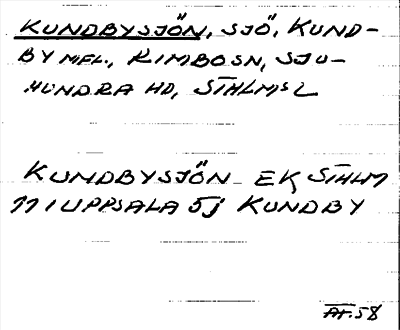 KUNDBYSJÖN, SJÖ, KUND-
BY MFL., RIMBO SN, SJU-
HUNDRA HD, STHLMS L
KUNDBYSJÖN EK STHLM
11 I UPPSALA 5j KUNDBY
AF.58